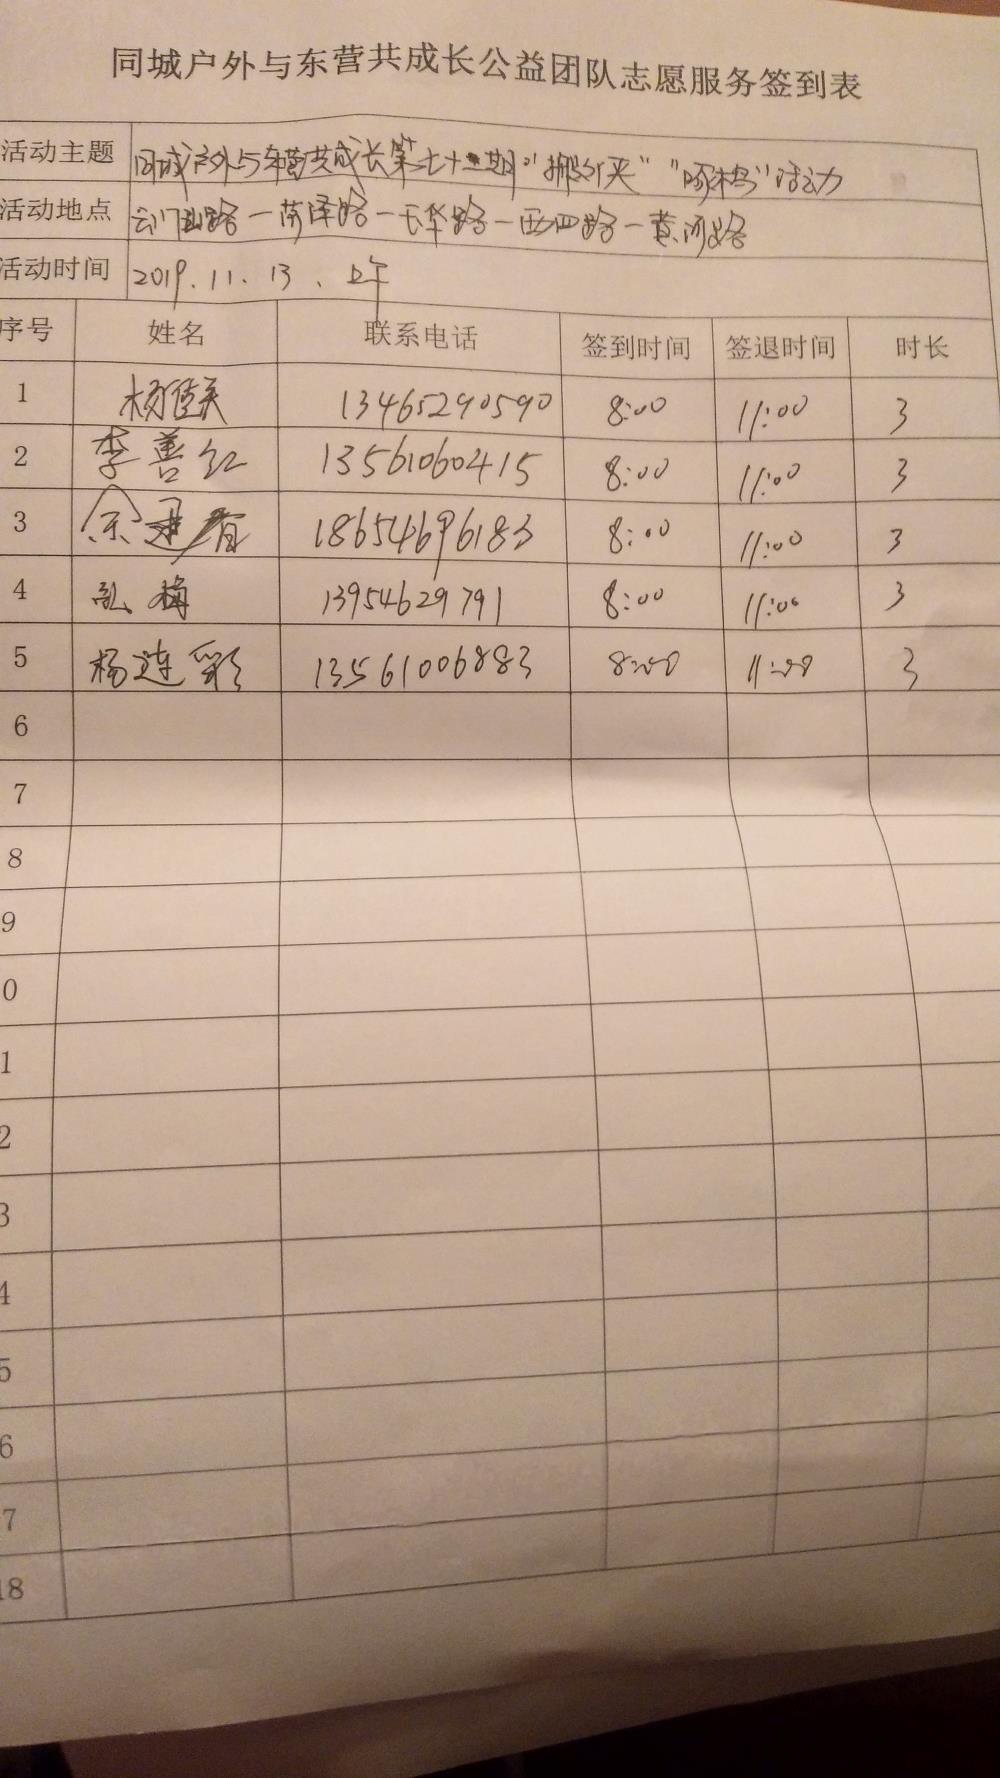 同城户外与东营共成长公益团队志愿服务签到表
活动主题 同城户外与东营共成长第七十三期"挪车侠" "啄木鸟"活动
活动地点 云门山路—菏泽路—天华路—西四路—黄河路
活动时间 2019.11.13、上午
序号 姓名 联系电话 签到时间 签退时间 时长
1 杨 13465290590 8:00 11:00 3
2 李善红 13561060415 8:00 11:00 3
3 余建春 18654696183 8:00 11:00 3
4 梅 13954629791 8:00 11:00 3
5 杨连彩 13561006883 8:00 11:00 3
6
7
8
9
0
1
2
3
4
5
6
7
18